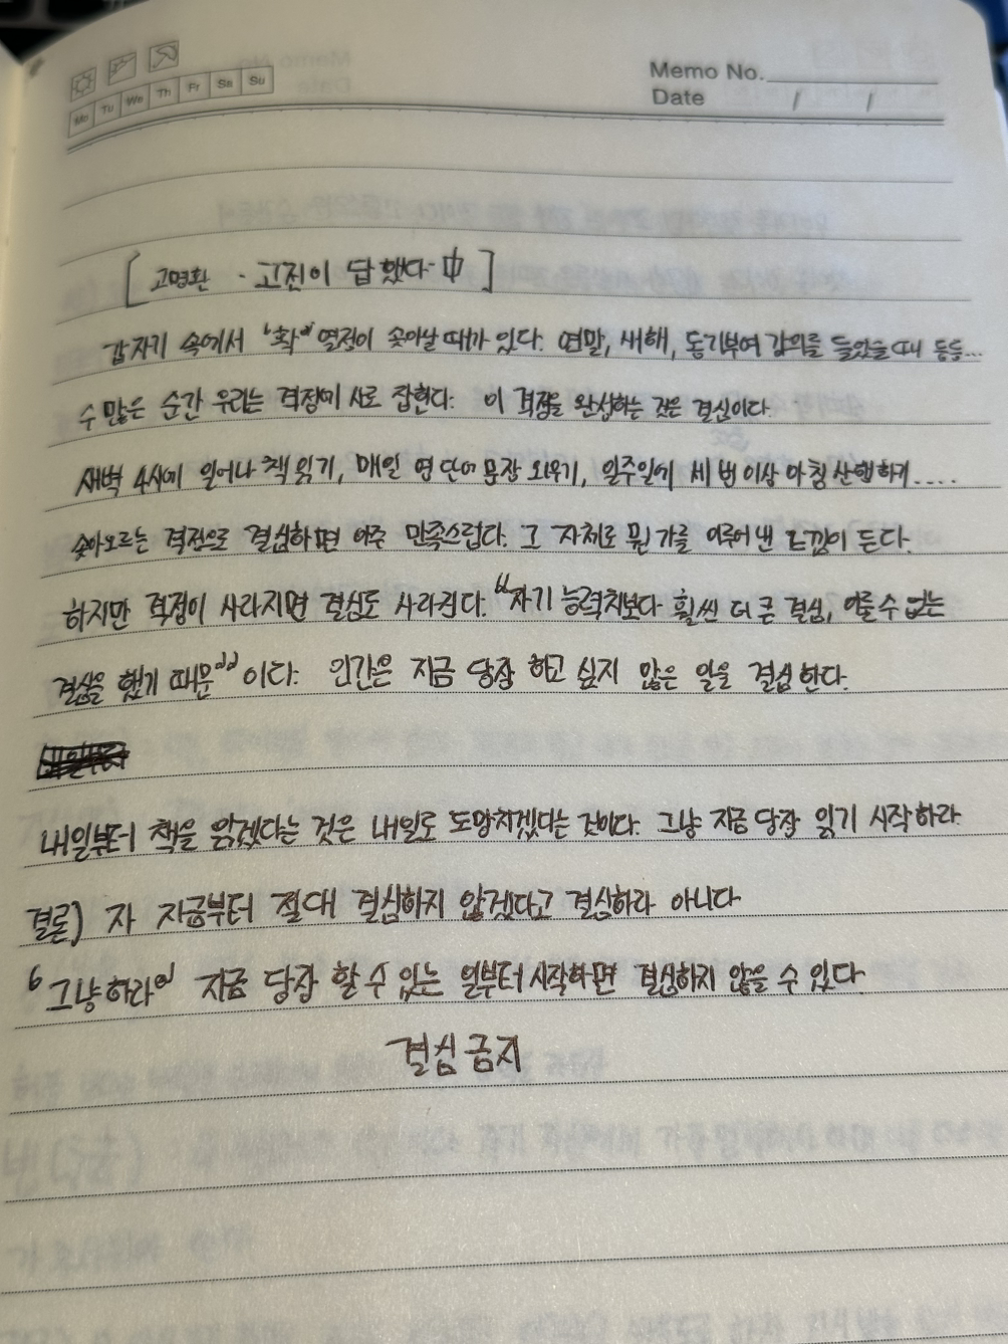 Mo Tu We Th Fr Sa Su
Memo No.
Date / /
[ 고명환 - 고전이 답했다 - 中 ]
갑자기 속에서 '확' 열정이 솟아날 때가 있다. 연말, 새해, 동기부여 강의를 들었을 때 등등...
수 많은 순간 우리는 격정에 사로 잡힌다. 이 격정을 완성하는 것은 결심이다.
새벽 4시에 일어나 책 읽기, 매일 영단어 문장 외우기, 일주일에 세 번 이상 아침 산행하기....
솟아오르는 격정으로 결심하면 아주 만족스럽다. 그 자체로 뭔가를 이루어 낸 느낌이 든다.
하지만 격정이 사라지면 결심도 사라진다. "자기 능력치보다 훨씬 더 큰 결심, 이룰 수 없는
결심을 했기 때문"이다. 인간은 지금 당장 하고 싶지 않은 일을 결심한다.
내일부터 책을 읽겠다는 것은 내일로 도망치겠다는 것이다. 그냥 지금 당장 읽기 시작하라.
결론) 자 지금부터 절대 결심하지 않겠다고 결심하라 아니다
'그냥하라' 지금 당장 할 수 있는 일부터 시작하면 결심하지 않을 수 있다.
결심 금지